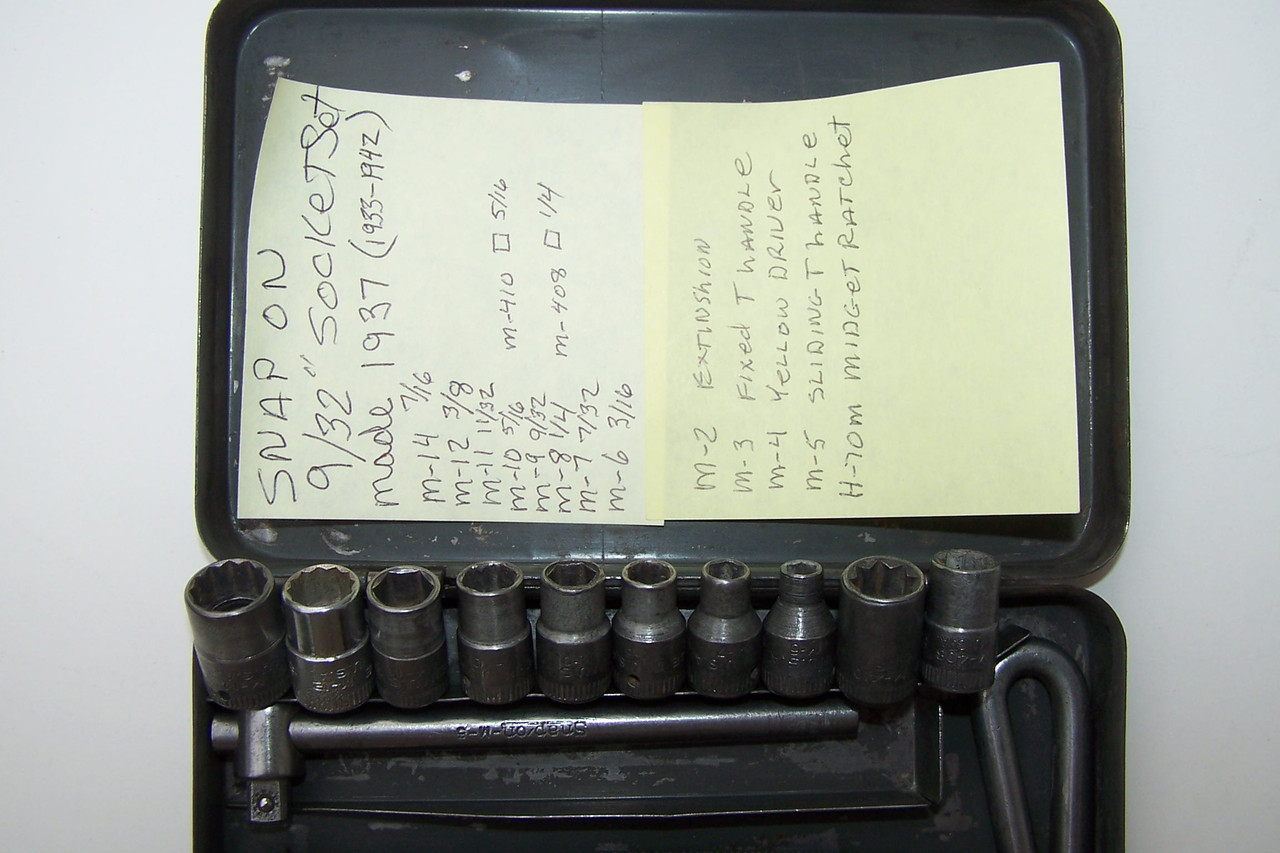 SNAP ON
9/32" SOCKET Set
made 1937 (1933-1942)
m-14 7/16
m-12 3/8
m-11 11/32
m-10 5/16
m-9 9/32
m-8 1/4
m-7 7/32
m-6 3/16
m-410 □ 5/16
m-408 □ 1/4
m-2 EXTINShION
m-3 Fixed T hANDLE
m-4 YELLOW DRIVer
m-5 SLIDING T hANDLE
H-70m MIDGeT RATchet
Snap-on M-5